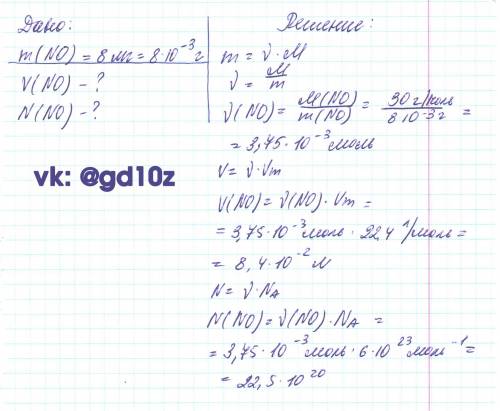 Дано:
m(NO) = 8 мг = 8·10⁻³ г
V(NO) - ?
N(NO) - ?
Решение:
m = ν · M
ν = M/m
ν(NO) = M(NO)/m(NO) = 30 г/моль / 8·10⁻³ г =
= 3,75 · 10⁻³ моль
V = ν · Vm
V(NO) = ν(NO) · Vm =
= 3,75 · 10⁻³ моль · 22,4 л/моль =
= 8,4 · 10⁻² л
N = ν · NA
N(NO) = ν(NO) · NA =
= 3,75 · 10⁻³ моль · 6 · 10²³ моль⁻¹ =
= 22,5 · 10²⁰
vk: @gd10z